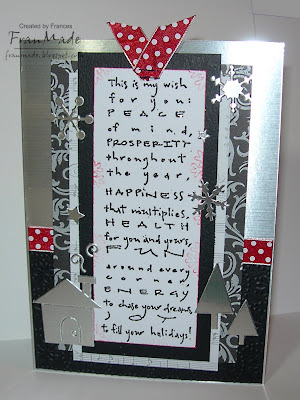 Created by Frances
FranMade
franmade.blogspot.com
This is my wish
for you:
PEACE
of mind,
PROSPERITY
throughout
the year,
HAPPINESS
that multiplies,
HEALTH
for you and yours,
FUN
around every
corner,
ENERGY
to chase your dreams,
JOY
to fill your holidays!